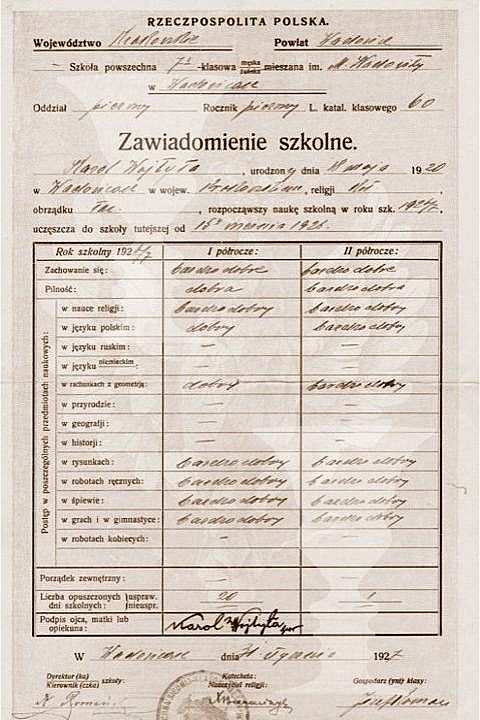 RZECZPOSPOLITA POLSKA.
Województwo Krakowskie Powiat Wadowice
— Szkoła powszechna 7º -klasowa męska żeńska mieszana im. M. Wadowity
w Wadowicach
Oddział pierwszy Rocznik pierwszy L. katal. klasowego 60
Zawiadomienie szkolne.
Karol Wojtyła, urodzony dnia 18 maja 1920
w Wadowicach w wojew. Krakowskiem, religji
obrządku łac., rozpocząwszy naukę szkolną w roku szk. 1926/7,
uczęszcza do szkoły tutejszej od 15º września 1926.
Rok szkolny 1926/7 I półrocze: II półrocze:
Zachowanie się: bardzo dobre bardzo dobre
Pilność: dobra bardzo dobra
Postęp w poszczególnych przedmiotach naukowych:
w nauce religji: bardzo dobry bardzo dobry
w języku polskim: dobry bardzo dobry
w języku ruskim: — —
w języku niemieckim: — —
w rachunkach z geometrją: dobry bardzo dobry
w przyrodzie: — —
w geografji: — —
w historji: — —
w rysunkach: bardzo dobry bardzo dobry
w robotach ręcznych: bardzo dobry bardzo dobry
w śpiewie: bardzo dobry bardzo dobry
w grach i w gimnastyce: bardzo dobry bardzo dobry
w robotach kobiecych: — —
Porządek zewnętrzny: — —
Liczba opuszczonych dni szkolnych: uspraw. 20 1
nieuspr. — —
Podpis ojca, matki lub opiekuna: Karol Wojtyła
W Wadowicach dnia 1927
Dyrektor (ka) Kierownik (czka) szkoły: Katecheta: Nauczyciel religji: Gospodarz (yni) klasy: